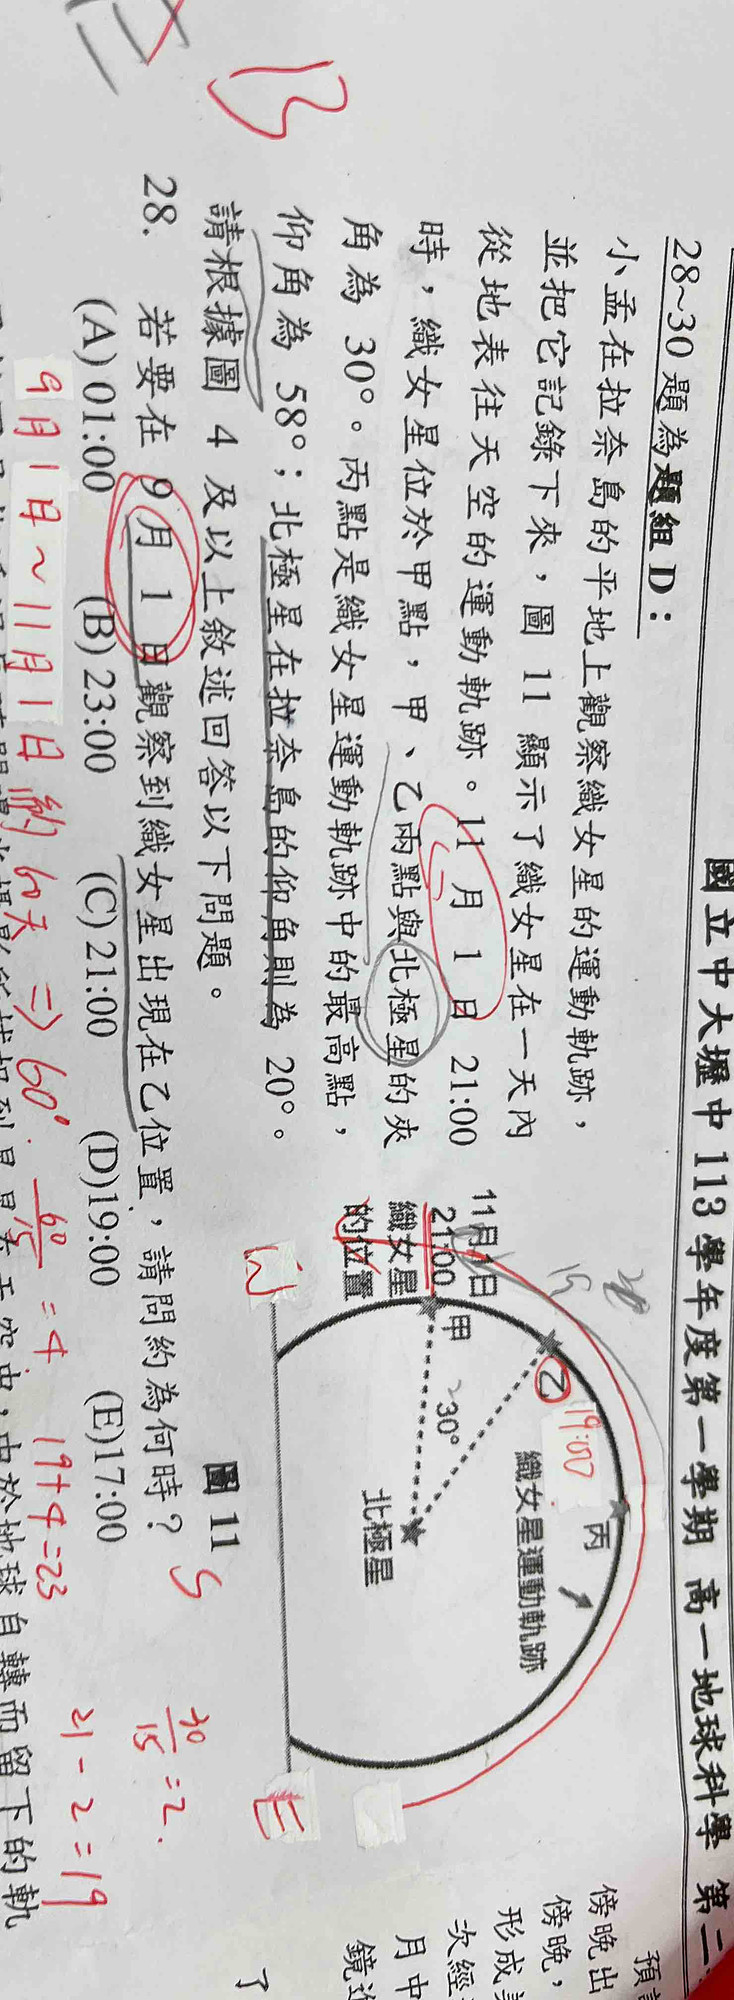 國立中大壢中 113 學年度第一學期 高一地球科學 第二
28~30 題為題組 D：
小孟在拉奈島的平地上觀察織女星的運動軌跡，
並把它記錄下來，圖 11 顯示了織女星在一天內
從地表往天空的運動軌跡。11 月 1 日 21:00
時，織女星位於甲點，甲、乙兩點與北極星的夾
角為 30°。丙點是織女星運動軌跡中的最高點，
仰角為 58°；北極星在拉奈島的仰角則為 20°。
請根據圖 4 及以上敘述回答以下問題。
28. 若要在 9 月 1 日觀察到織女星出現在乙位置，請問約為何時？
(A) 01:00 (B) 23:00 (C) 21:00 (D)19:00 (E)17:00
B
9月1日~11月1日 約 60天 ⇒ 60°
60/15 = 4 19+4=23
30/15 = 2
21-2=19
11月1日
21:00
織女星
的位置
甲
乙
19:00
丙
30°
北極星
織女星運動軌跡
W
N
E
S
圖 11
傍晚出
傍晚，
形成
次經
月中
鏡